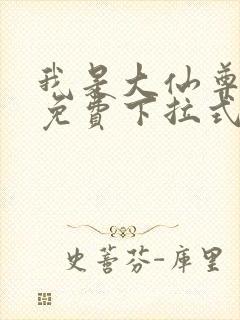 我是大仙尊
免费下拉式
史蒈芬-库里